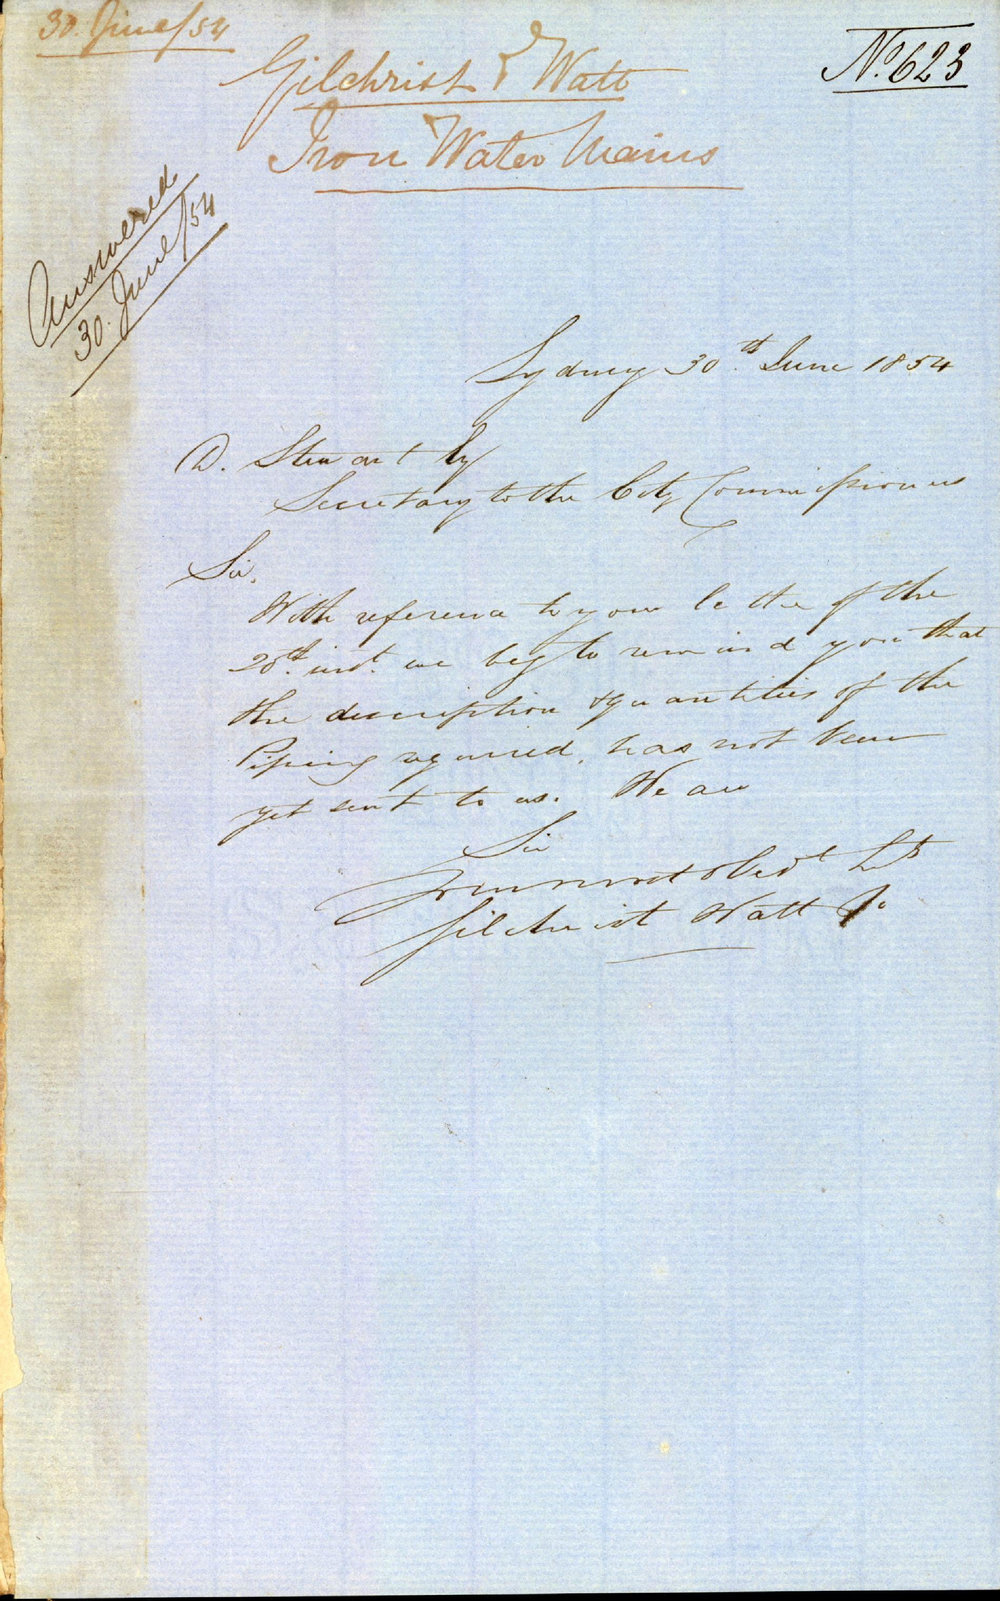 30. June/54
No. 623
Gilchrist & Watt
Iron Water Mains
Answered
30. June/54
Sydney 30th. June 1854
D. Stewart Esq
Secretary to the City Commissioners
Sir,
With reference to your letter of the
28th. inst. we beg to remind you that
the description & quantities of the
Piping required, has not been
yet sent to us. We are
Sir
Your most Obedt. Sts
Gilchrist Watt & Co